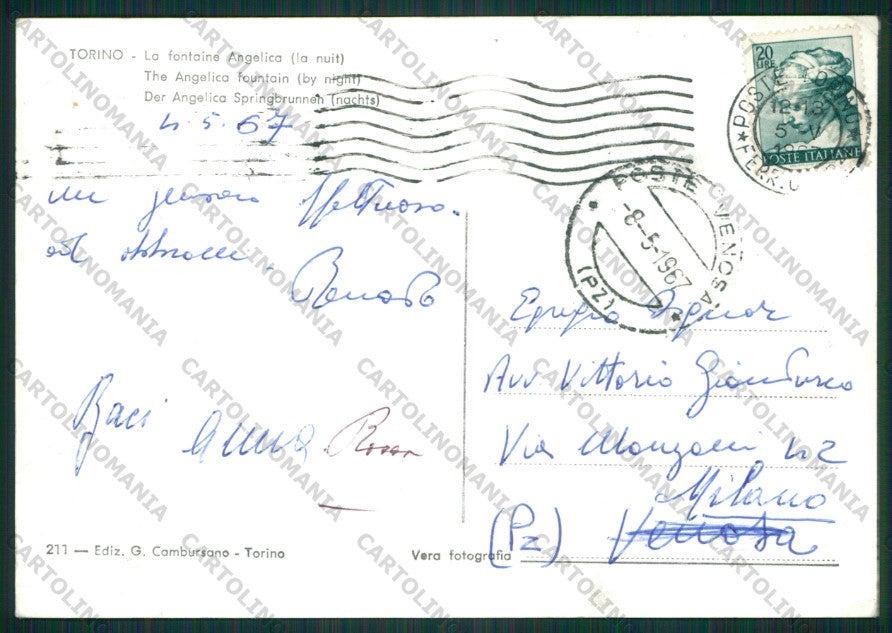 TORINO - La fontaine Angelica (la nuit)
The Angelica fountain (by night)
Der Angelica Springbrunnen (nachts)
4.5.67
un pensiero affettuoso.
ed abbracci.
Renato
Baci Anna Rosa
211 — Ediz. G. Cambursano - Torino
Vera fotografia
20
LIRE
POSTE ITALIANE
POSTE
FERR.
18-19
5-V
POSTE VENOSA
-8-5-1967
(PZ)
Egregio Signor
Avv Vittorio Gianturco
Via Manzoni 42
Milano
(Pz) Venosa
CARTOLINOMANIA